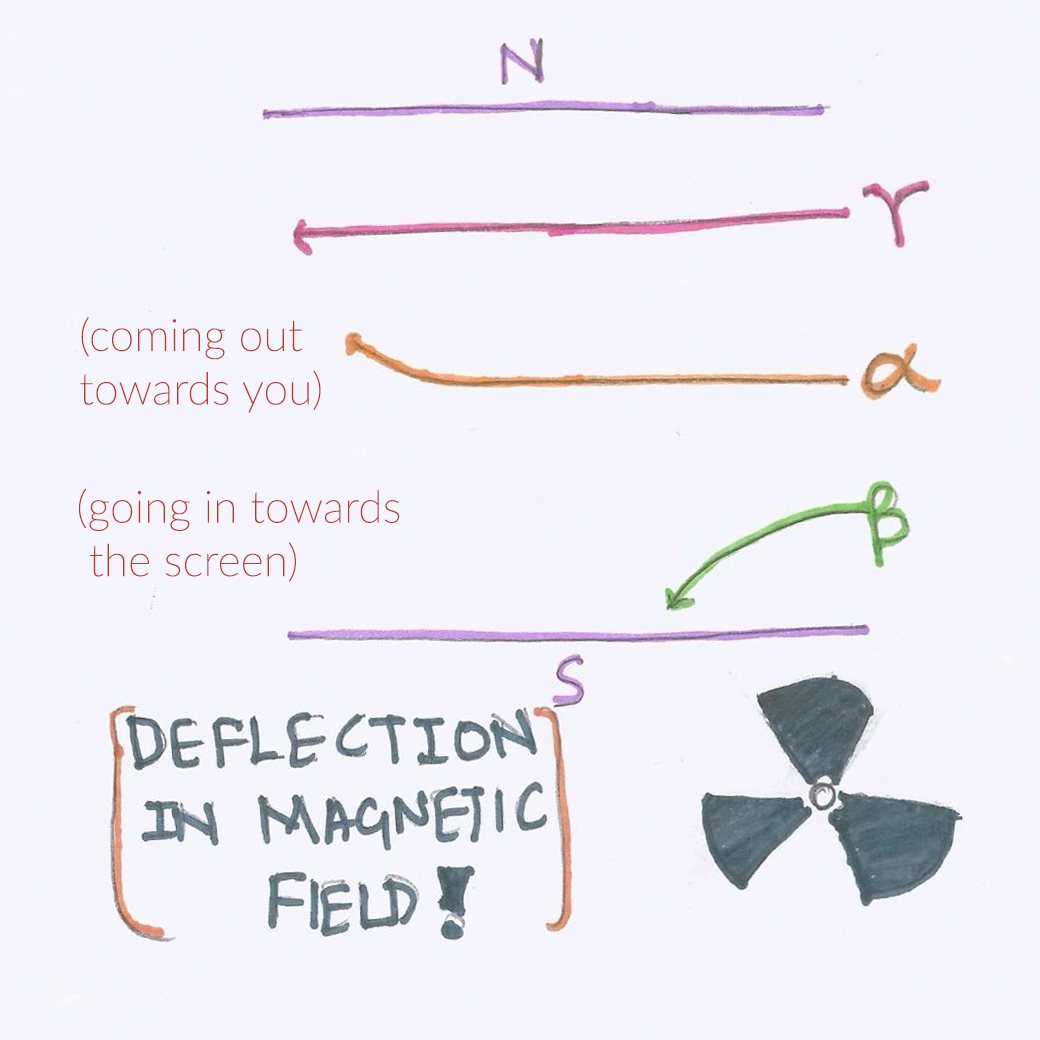 N
γ
(coming out
towards you)
α
(going in towards
the screen)
β
S
DEFLECTION
IN MAGNETIC
FIELD!